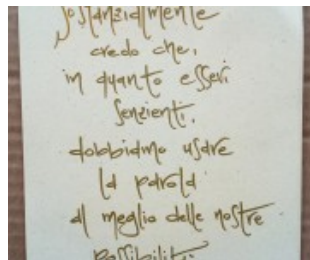 sostanzialmente
credo che,
in quanto esseri
senzienti,
dobbiamo usare
la parola
al meglio delle nostre
possibilità